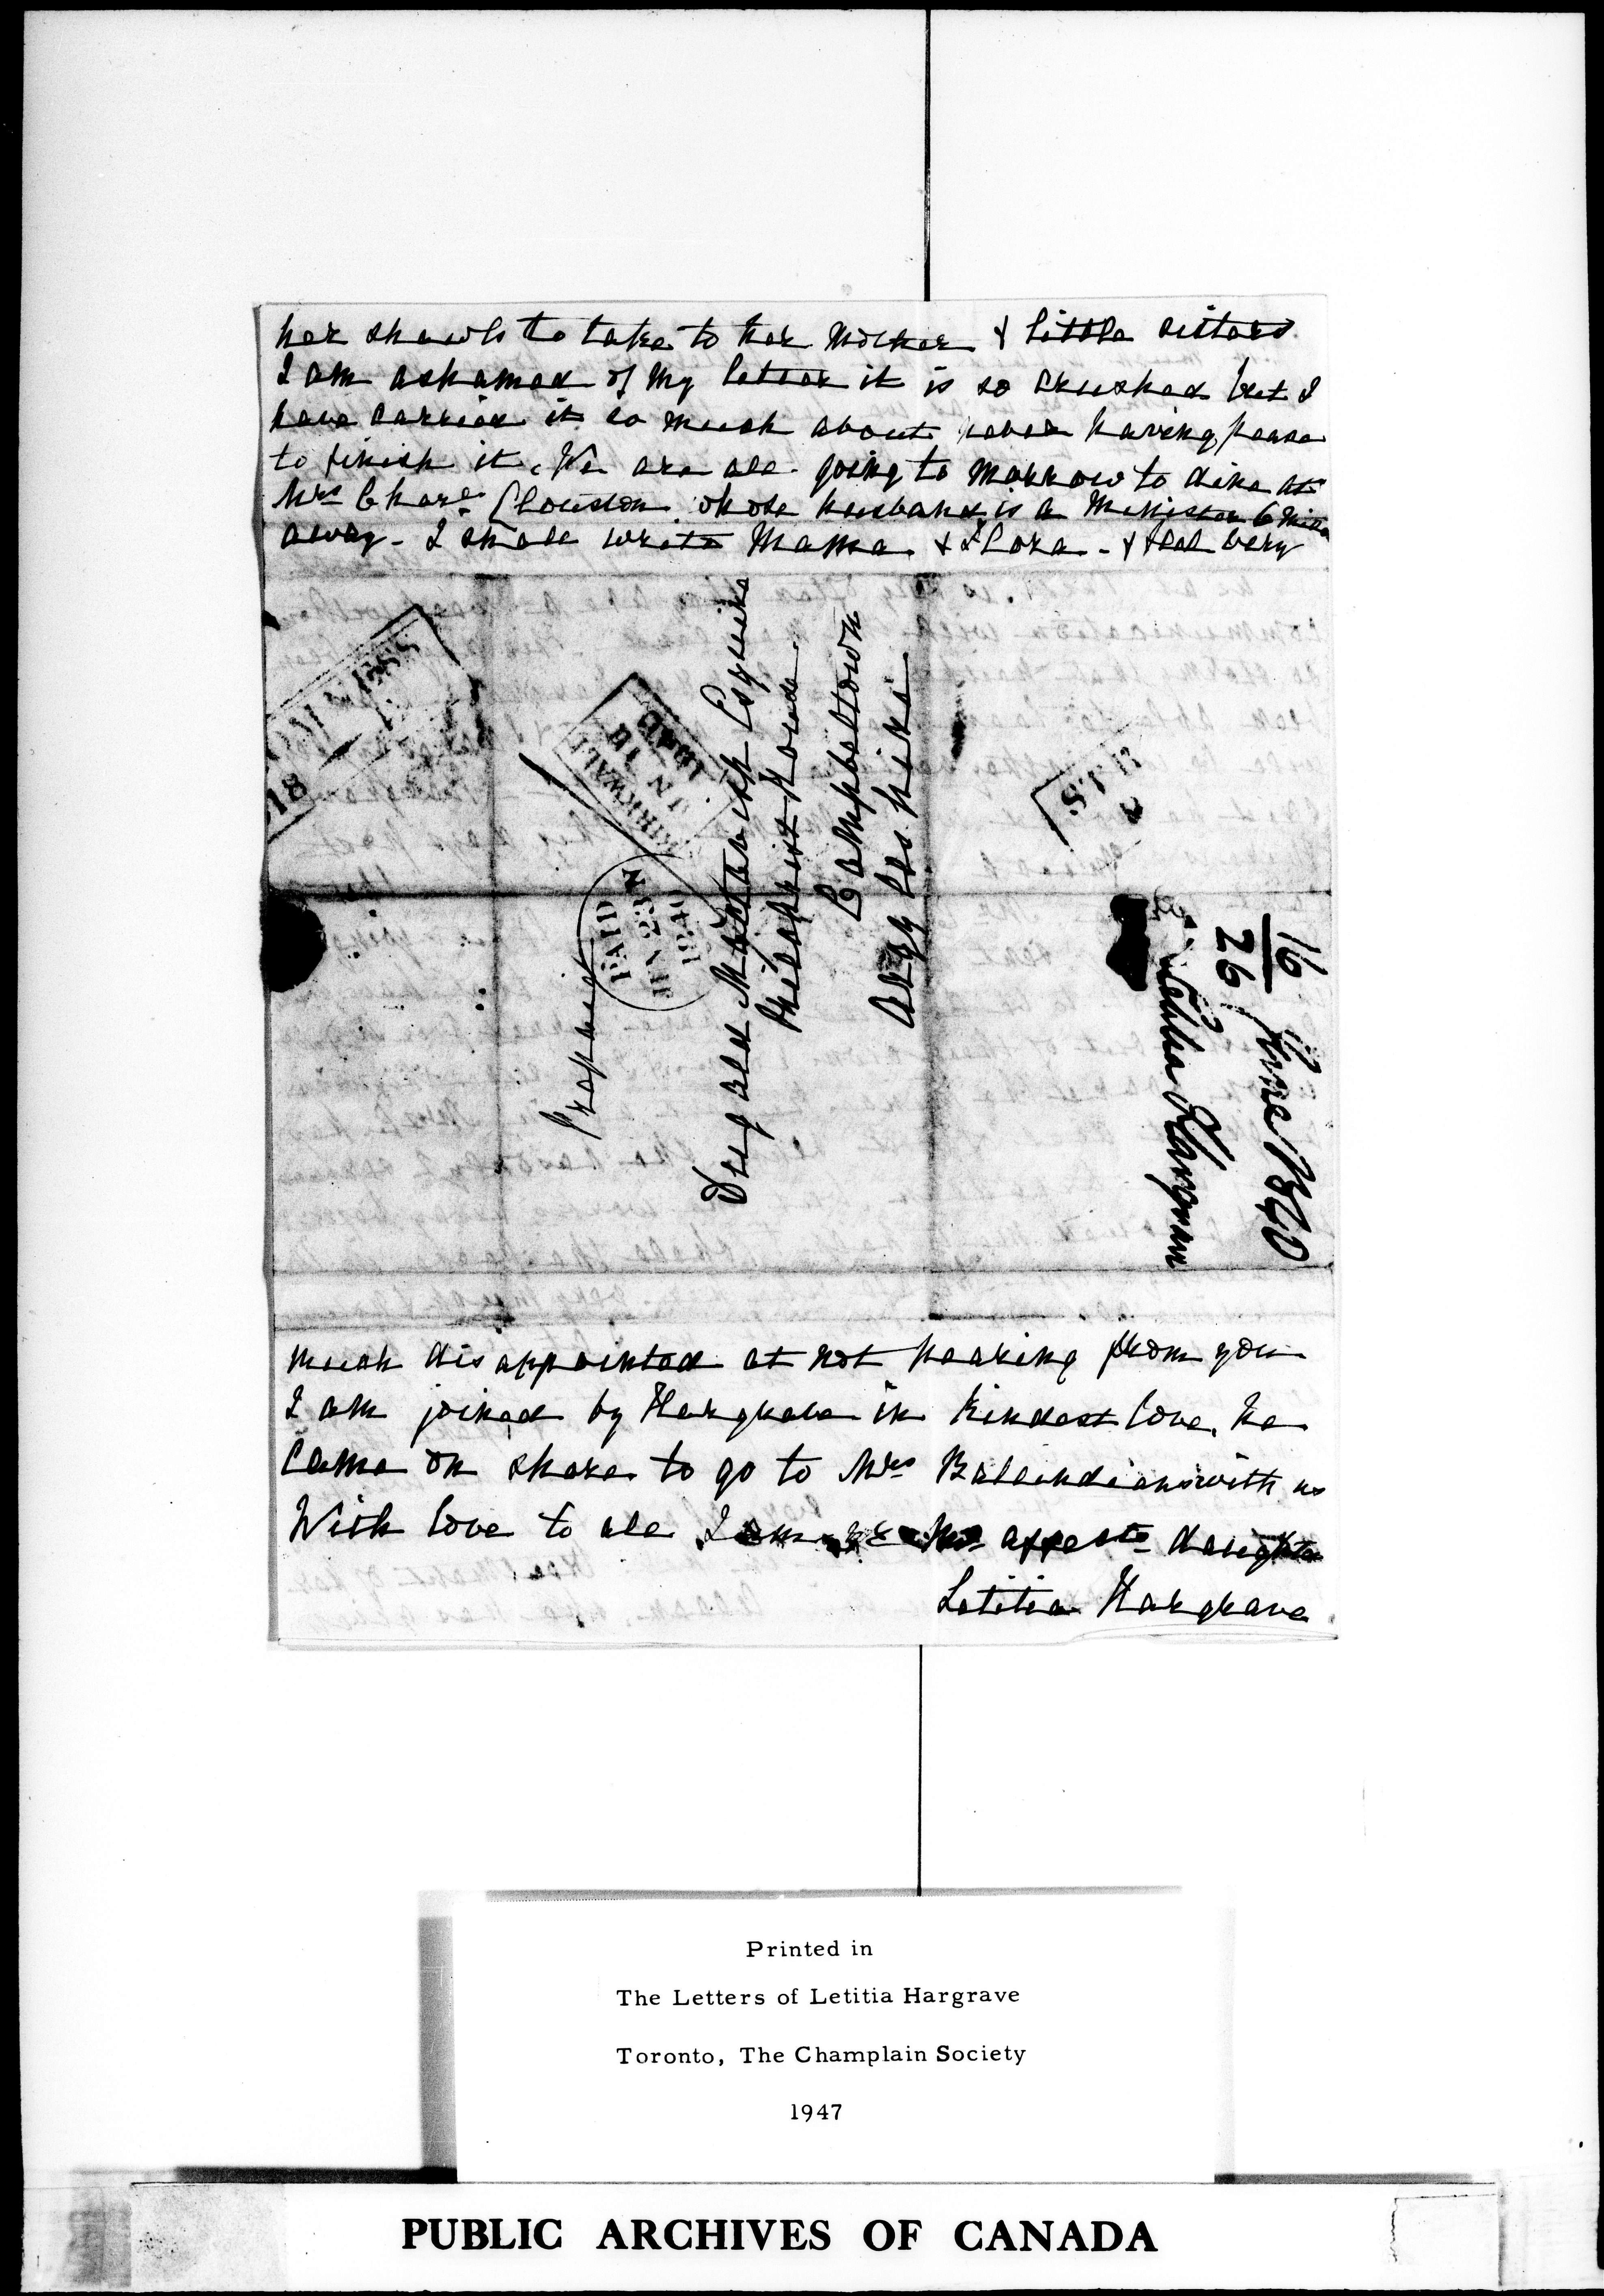 her shawls to take to her Mother & little sisters
I am ashamed of my letter it is so crushed but I
have carried it so much about never having peace
to finish it. We are all going to morrow to dine at
Mrs Charl. Clouston whose husband is a Minister 6 Miles
away - I shall write Mama & Flora - & feel very
Prepaid
PAID
JUN 23
1840
KIRKWALL
JN 18
1840
Dugald Mactavish Esquire
Kilchrist House
Campbeltown
Argyleshire
16
26 June 1840
Letitia Hargrave
much disappointed at not hearing from you
I am joined by Hargrave in kindest love. he
came on shore to go to Mrs Ballendians with us
With love to all I am affecte daughter
Letitia Hargrave
Printed in
The Letters of Letitia Hargrave
Toronto, The Champlain Society
1947
PUBLIC ARCHIVES OF CANADA